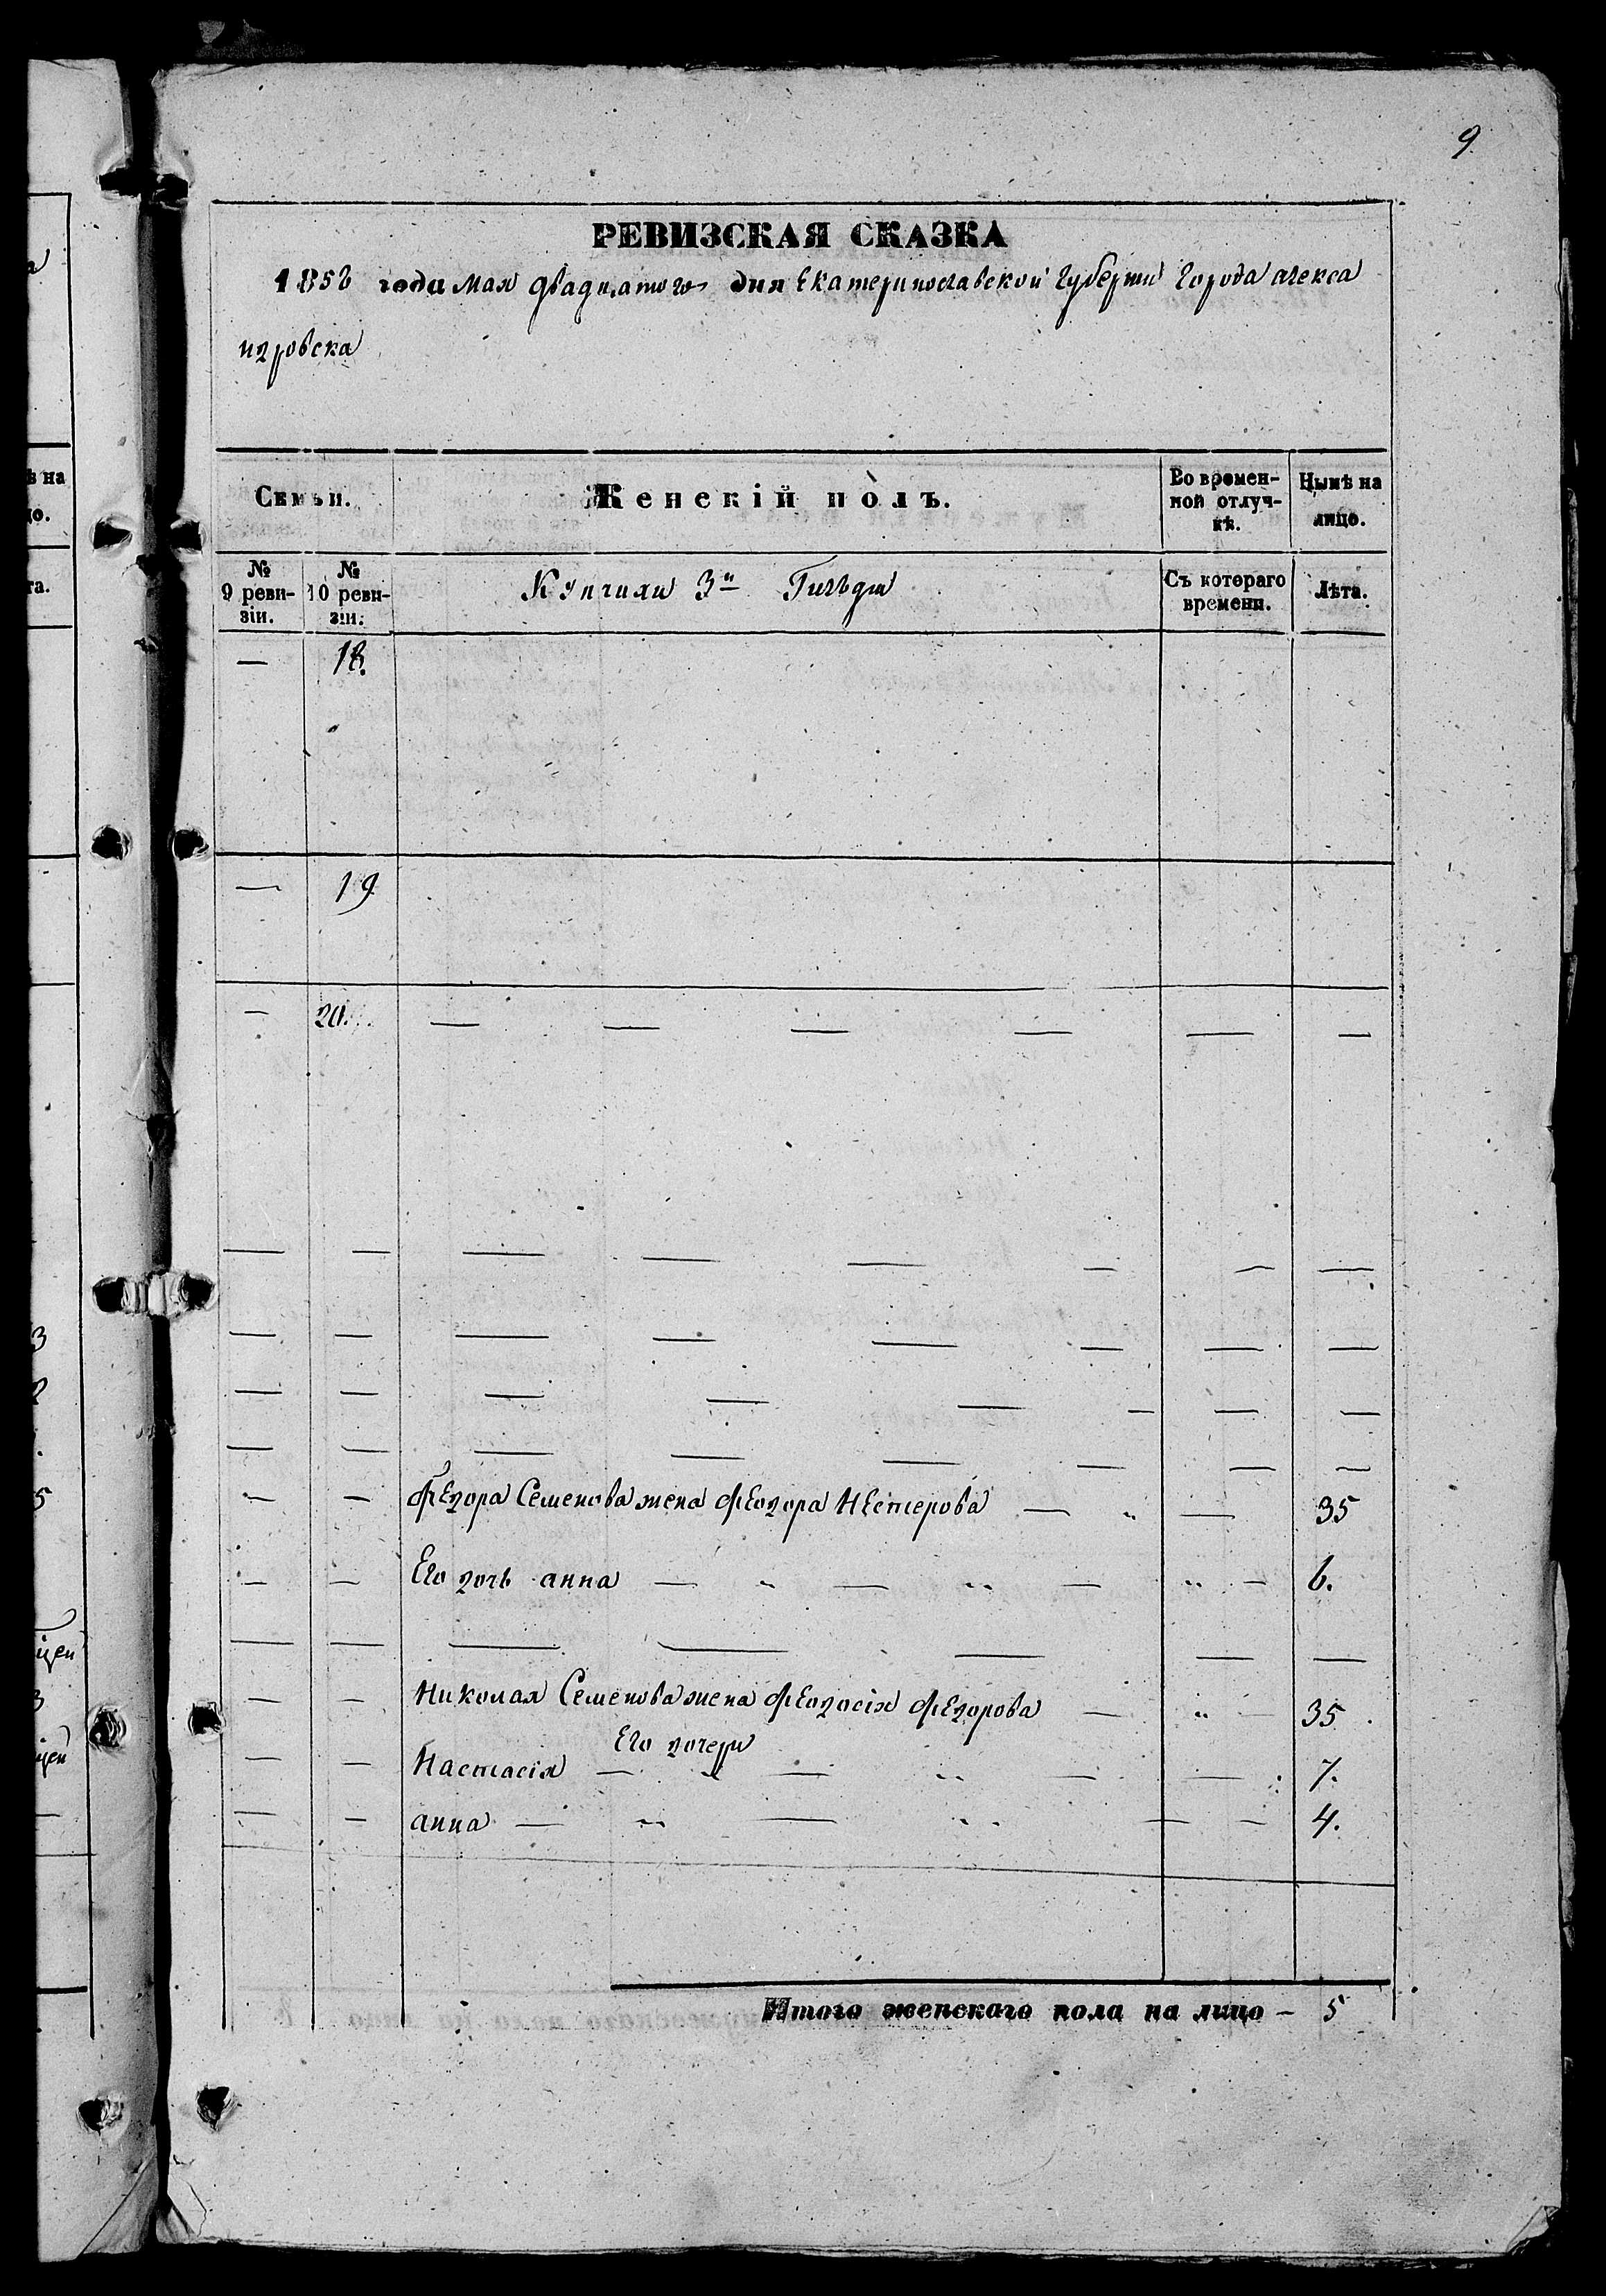 9.
РЕВИЗСКАЯ СКАЗКА
1858 года мая двадцатого дня Екатеринославской Губерніи Города алекса
ндровска
Семьи. Женскій полъ. Во времен- Нынѣ на
ной отлуч- лицо.
кѣ.
№ № Купчихи 3й Гильдіи Съ котораго Лѣта.
9 реви- 10 реви- времени.
зіи. зіи.
— 18.
— 19
— 20. — — — — — —
— — — — — — — —
— — — — — — — —
— — — — — — — —
— — — — — — — —
— — Федора Семенова жена Феодора Нестерова — „ — 35
— — Его дочь анна — „ — „ — „ — 6.
— — — — — — —
— — Николая Семенова жена Феодосія Федорова — „ — 35
Его дочери
— — Настасія — „ — „ — — 7.
— — анна — „ — „ — — 4.
Итого женскаго пола на лицо — 5